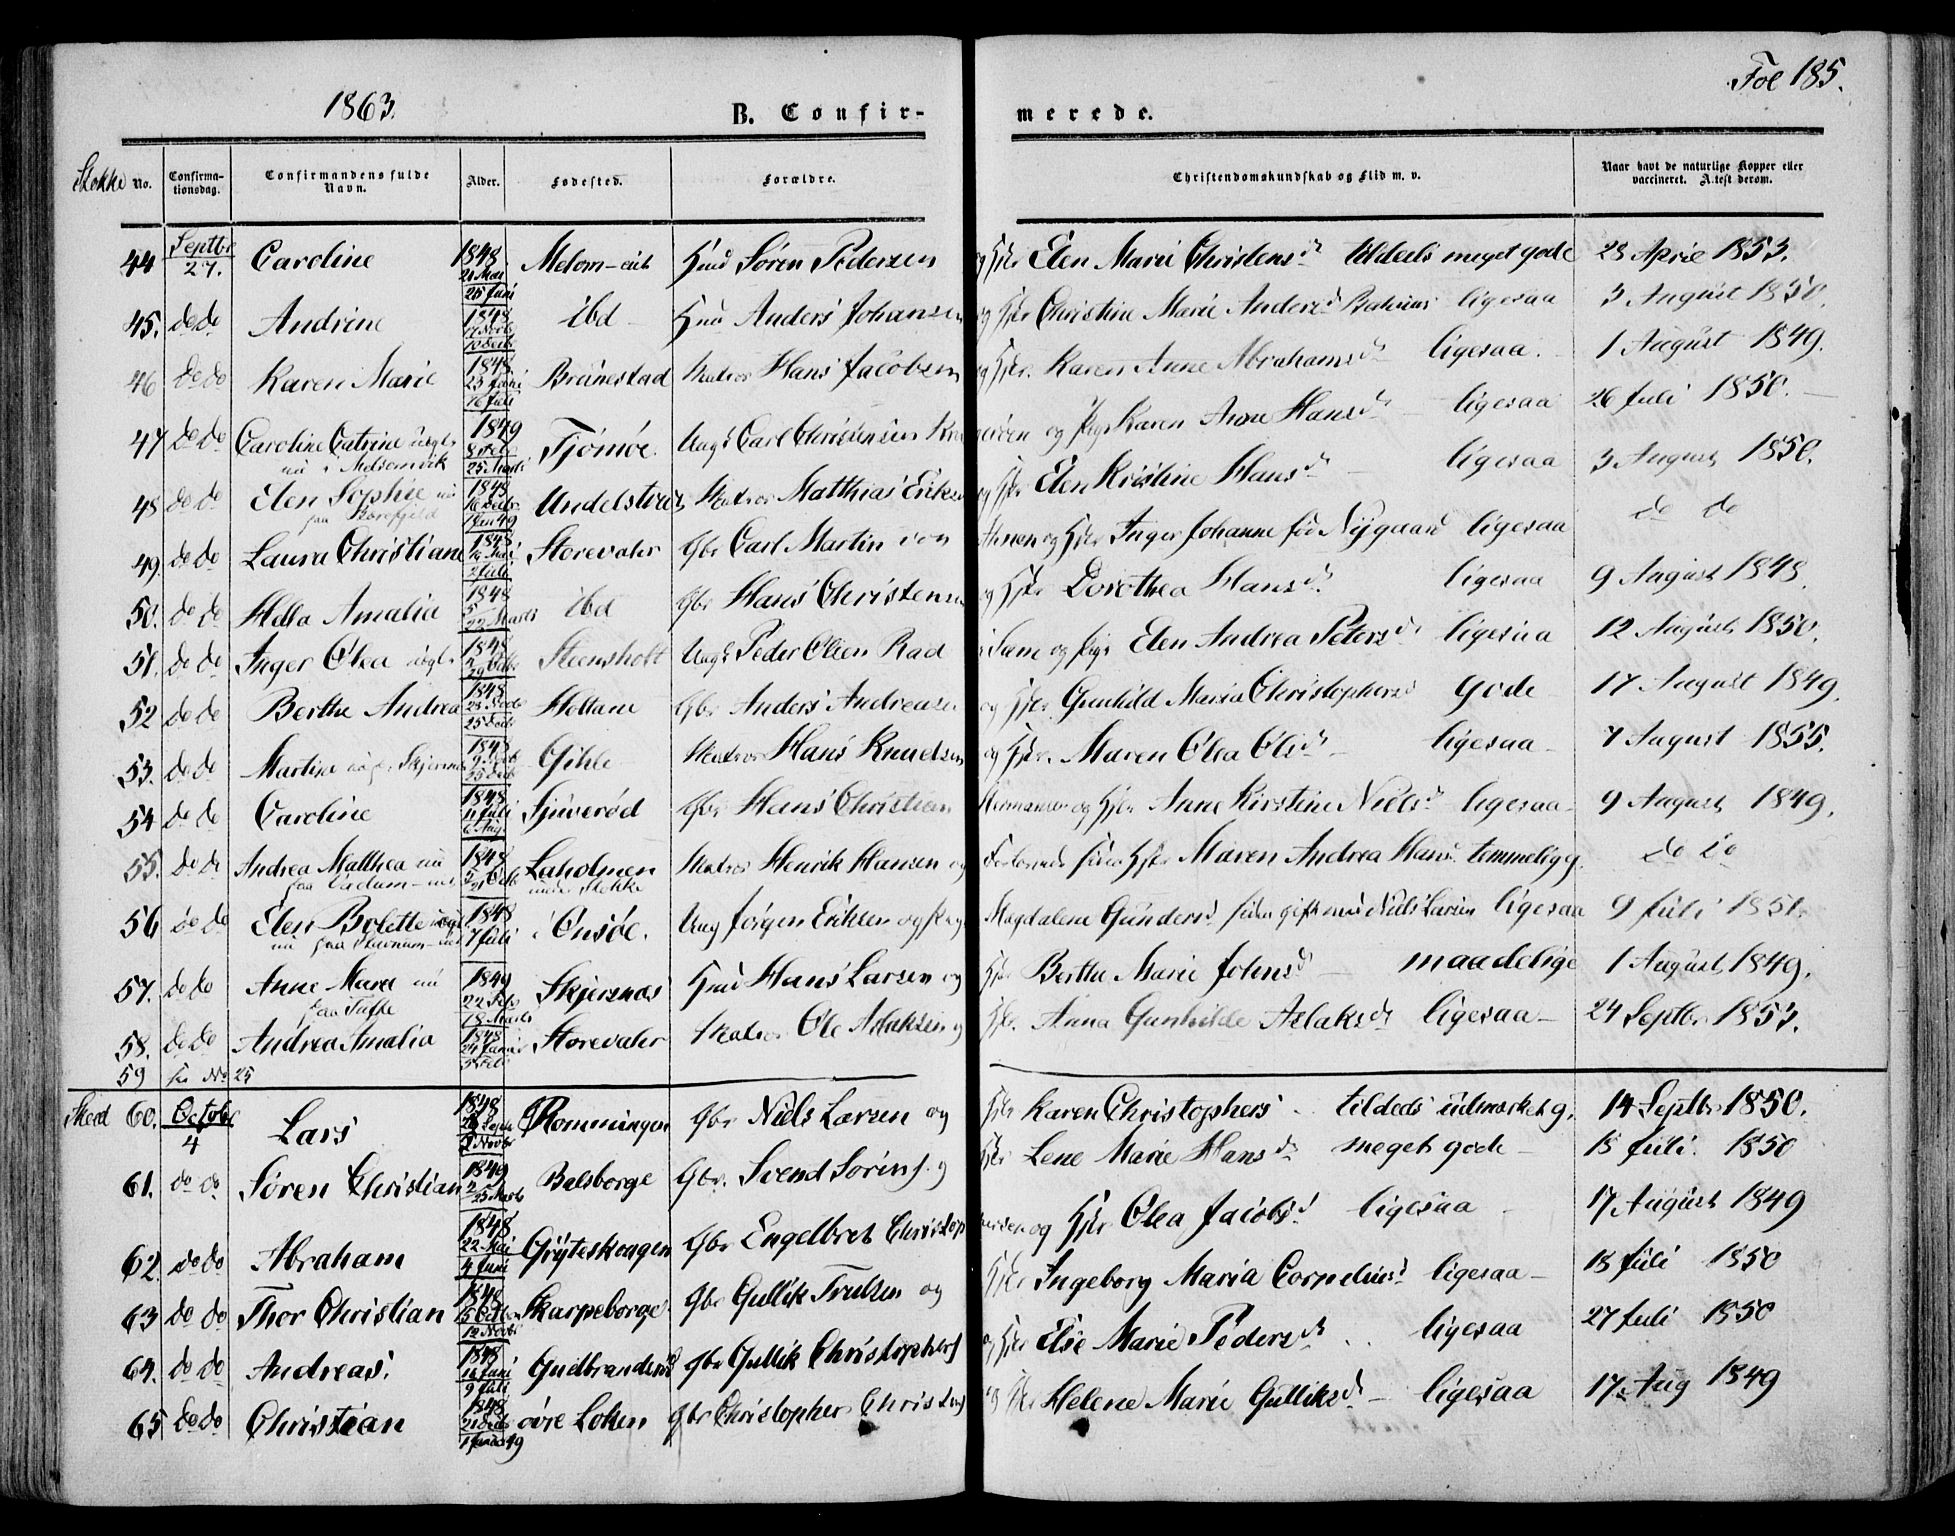 1863.
B. Confir-
merede.
Fol 185.
Stokke
No.
Confirma-
tionsdag.
Confirmandens fulde
Navn.
Alder.
Fødested.
Forældre.
Christendomskundskab og Flid m. v.
Naar havt de naturlige Kopper eller
vaccineret. Attest derom.
44 Septbr 27. Caroline 1848 21 Mai 25 Juni Melom-eie Hmd Søren Pedersen og Hstr Elen Marie Christensd. tildeels meget gode 28 April 1853.
45. do do Andrine 1848 10 Decb ibd Hmd Anders Johansen og Hstr Christine Marie Andersd. ligesaa 3 August 1850.
46 do do Karen Marie 1848 23 Juni 16 Juli Brunestad Matros Hans Jacobsen og Hstr. Karen Anne Abrahamsd. ligesaa. 1 August 1849.
47 do do Caroline Catrine uægte 1849 8 Feb 25 Marts Tjømøe. Ung Carl Christensen og Pige Karen Anne Hansd. ligesaa 26 Juli 1850.
nu i Melsomvik
48 do do Elen Sophie nu 1848 16 Decbr 1 Jan 49 Matros Matthias Eriks og Hstr Elen Kristine Hansd. ligesaa 3 August 1850.
49. do do Laura Christiane 1848 2 Juli Storevahr Gbr Carl Martin von og Hstr Inger Johanne fød Nygaard ligesaa do do
50. do do Hella Amalia 1848 5 22 Marts ibd Gbr Hans Christensen og Hstr Dorothea Hansd. ligesaa 9 August 1848.
51. do do Inger Olea uægte 1848 29 Octb Steensholt Ung Peder Olsen Rad i Sem og Pige Elen Andrea Petersd. ligesaa 12 August 1850.
52 do do Berthe Andrea 1848 25 Decb Gbr Anders Andreasen og Hstr Gunhild Maria Christophersd gode 17 August 1849.
53. do do Martine 1848 25 Decb Gihle Matros Hans Knudsen og Hstr. Maren Olea Olsd. ligesaa 7 August 1855.
54 do do Caroline 1848 11 Juli 6 Aug Sjuverød Gbr Hans Christian Hermansen og Hstr Anne Kirstine Nielsd ligesaa 9 August 1849.
55. do do Andrea Matthea nu 1848 Laholmen Matros Henrik Hansen og Hstr Maren Andrea Hansd. temmelig g. do do
under Stokke
56 do do Elen Bolette uægte 1848 7 Juli Onsøe. Ung Jørgen Eriksen og Pige Magdalene Gundersd. siden gift med Niels Larsen ligesaa 9 Juli 1851.
57. do do Anne Maria nu 1849 22 Feb 18 Marts Skjersnæs Hmd Hans Larsen og Hstr Berthe Marie Johnsd. maadelige 1 August 1849.
paa Tufte
58. do do Andrea Amalia 1848 24 Januar Storevahr Matros Ole Aslaksen og Hstr. Anna Gunhilde Aslaksd. ligesaa 24 Septbr 1853.
59 see No 25
Skeed 60. Octobr 4 Lars 1848 Romningen Gbr Niels Larsen og Hstr Karen Christophersd. tildeels udmærket g. 14 Septbr 1850.
61. do do Søren Christian 1849 25 Marts Balsborge Gbr. Svend Sørens. og Hstr Lene Marie Hansd. meget gode 18 Juli 1850
62. do do Abraham 1848 22 Mai 4 Juni Gryteskougen Gbr Engelbret Christophersen og Hstr Olea Jacobsd. ligesaa 17 August 1849
63 do do Thor Christian 1848 15 Octbr 12 Novbr Skarpeborge Gbr Gullik Trulsen og Hstr Ingeborg Maria Corneliusd. ligesaa 18 Juli 1850
64. do do Andreas. 1848 16 Juni 9 Juli Gudbrandsrød Gbr Gullik Christophers. og Hstr Else Marie Pedersd. ligesaa 27 Juli 1850
65 do do Christian 1848 21 Decb 1 Januar 49 øvre Loken Gbr Christopher Christens. og Hstr Helene Marie Gulliksd. ligesaa 17 Aug 1849